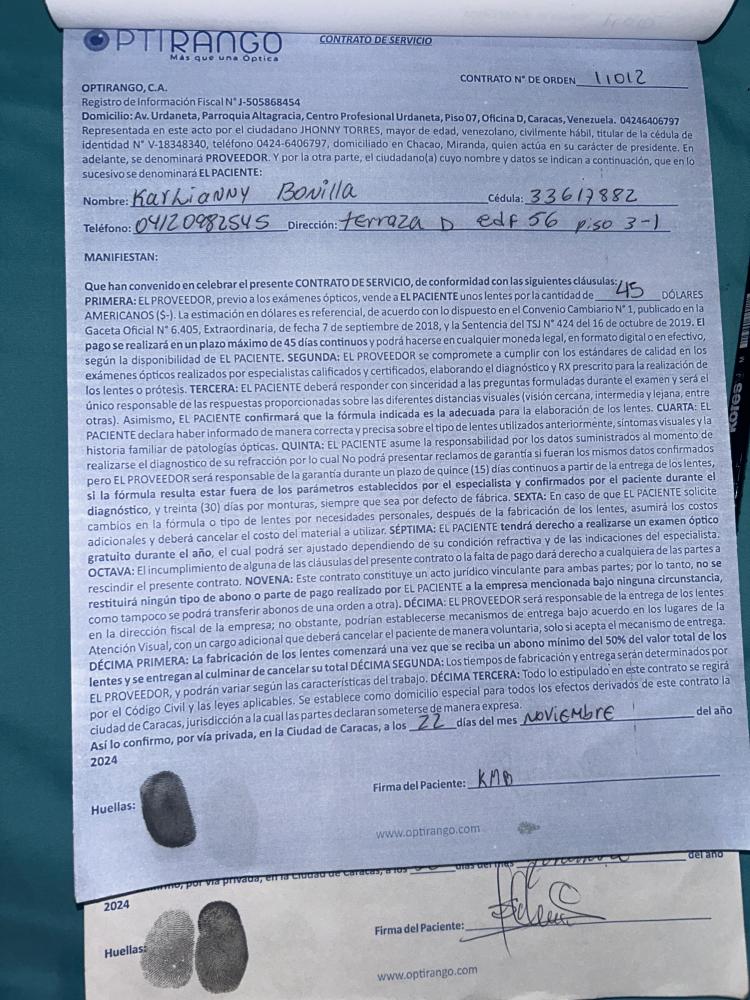 OPTIRANGO
Más que una Óptica
CONTRATO DE SERVICIO
CONTRATO N° DE ORDEN 11012
OPTIRANGO, C.A.
Registro de Información Fiscal N° J-505868454
Domicilio: Av. Urdaneta, Parroquia Altagracia, Centro Profesional Urdaneta, Piso 07, Oficina D, Caracas, Venezuela. 04246406797
Representada en este acto por el ciudadano JHONNY TORRES, mayor de edad, venezolano, civilmente hábil, titular de la cédula de
identidad N° V-18348340, teléfono 0424-6406797, domiciliado en Chacao, Miranda, quien actúa en su carácter de presidente. En
adelante, se denominará PROVEEDOR. Y por la otra parte, el ciudadano(a) cuyo nombre y datos se indican a continuación, que en lo
sucesivo se denominará EL PACIENTE:
Nombre: Karlianny Bonilla Cédula: 33617882
Teléfono: 04120982545 Dirección: terraza D edf 56 piso 3-1
MANIFIESTAN:
Que han convenido en celebrar el presente CONTRATO DE SERVICIO, de conformidad con las siguientes cláusulas:
PRIMERA: EL PROVEEDOR, previo a los exámenes ópticos, vende a EL PACIENTE unos lentes por la cantidad de 45 DÓLARES
AMERICANOS ($-). La estimación en dólares es referencial, de acuerdo con lo dispuesto en el Convenio Cambiario N° 1, publicado en la
Gaceta Oficial N° 6.405, Extraordinaria, de fecha 7 de septiembre de 2018, y la Sentencia del TSJ N° 424 del 16 de octubre de 2019. El
pago se realizará en un plazo máximo de 45 días continuos y podrá hacerse en cualquier moneda legal, en formato digital o en efectivo,
según la disponibilidad de EL PACIENTE. SEGUNDA: EL PROVEEDOR se compromete a cumplir con los estándares de calidad en los
exámenes ópticos realizados por especialistas calificados y certificados, elaborando el diagnóstico y RX prescrito para la realización de
los lentes o prótesis. TERCERA: EL PACIENTE deberá responder con sinceridad a las preguntas formuladas durante el examen y será el
único responsable de las respuestas proporcionadas sobre las diferentes distancias visuales (visión cercana, intermedia y lejana, entre
otras). Asimismo, EL PACIENTE confirmará que la fórmula indicada es la adecuada para la elaboración de los lentes. CUARTA: EL
PACIENTE declara haber informado de manera correcta y precisa sobre el tipo de lentes utilizados anteriormente, síntomas visuales y la
historia familiar de patologías ópticas. QUINTA: EL PACIENTE asume la responsabilidad por los datos suministrados al momento de
realizarse el diagnostico de su refracción por lo cual No podrá presentar reclamos de garantía si fueran los mismos datos confirmados
pero EL PROVEEDOR será responsable de la garantía durante un plazo de quince (15) días continuos a partir de la entrega de los lentes,
si la fórmula resulta estar fuera de los parámetros establecidos por el especialista y confirmados por el paciente durante el
diagnóstico, y treinta (30) días por monturas, siempre que sea por defecto de fábrica. SEXTA: En caso de que EL PACIENTE solicite
cambios en la fórmula o tipo de lentes por necesidades personales, después de la fabricación de los lentes, asumirá los costos
adicionales y deberá cancelar el costo del material a utilizar. SÉPTIMA: EL PACIENTE tendrá derecho a realizarse un examen óptico
gratuito durante el año, el cual podrá ser ajustado dependiendo de su condición refractiva y de las indicaciones del especialista.
OCTAVA: El incumplimiento de alguna de las cláusulas del presente contrato o la falta de pago dará derecho a cualquiera de las partes a
rescindir el presente contrato. NOVENA: Este contrato constituye un acto jurídico vinculante para ambas partes; por lo tanto, no se
restituirá ningún tipo de abono o parte de pago realizado por EL PACIENTE a la empresa mencionada bajo ninguna circunstancia,
como tampoco se podrá transferir abonos de una orden a otra). DÉCIMA: EL PROVEEDOR será responsable de la entrega de los lentes
en la dirección fiscal de la empresa; no obstante, podrían establecerse mecanismos de entrega bajo acuerdo en los lugares de la
Atención Visual, con un cargo adicional que deberá cancelar el paciente de manera voluntaria, solo si acepta el mecanismo de entrega.
DÉCIMA PRIMERA: La fabricación de los lentes comenzará una vez que se reciba un abono mínimo del 50% del valor total de los
lentes y se entregan al culminar de cancelar su total DÉCIMA SEGUNDA: Los tiempos de fabricación y entrega serán determinados por
EL PROVEEDOR, y podrán variar según las características del trabajo. DÉCIMA TERCERA: Todo lo estipulado en este contrato se regirá
por el Código Civil y las leyes aplicables. Se establece como domicilio especial para todos los efectos derivados de este contrato la
ciudad de Caracas, jurisdicción a la cual las partes declaran someterse de manera expresa.
Así lo confirmo, por vía privada, en la Ciudad de Caracas, a los 22 días del mes NOVIEMBRE del año
2024
Huellas:
Firma del Paciente: KMB
www.optirango.com
por vía privada, en la Ciudad de Caracas, a los días del mes del año
2024
Huellas:
Firma del Paciente:
www.optirango.com
Kores